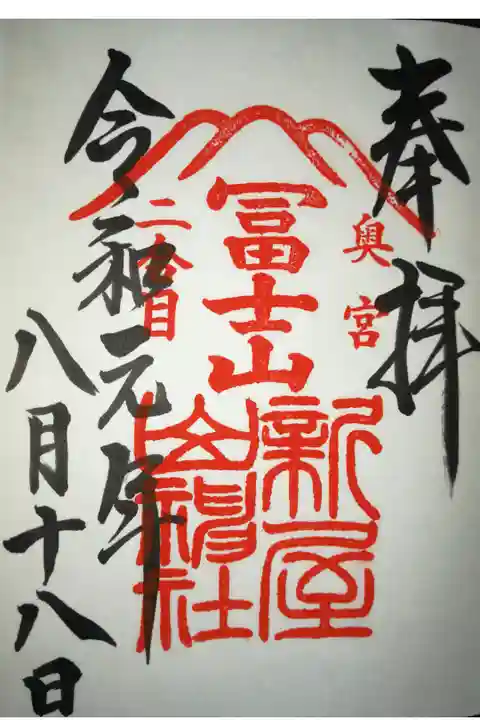 奉拝
奥宮
冨士山
新屋
山神社
二合目
令和元年
八月十八日